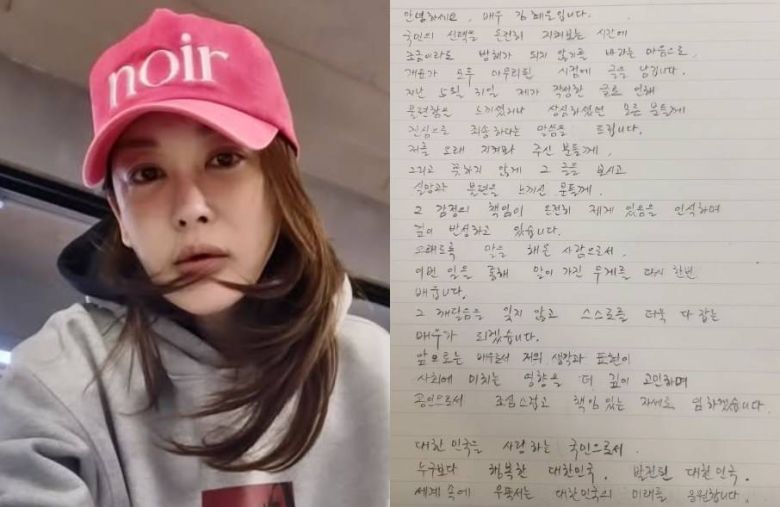 noir
안녕하세요, 배우 김혜은입니다.
국민의 선택을 온전히 지켜보는 시간에
조금이라도 방해가 되지 않기를 바라는 마음으로,
개표가 모두 마무리된 시점에 글을 남깁니다.
지난 5월 31일 제가 작성한 글로 인해
불편함을 느끼셨거나 상심하셨던 모든 분들께
진심으로 죄송하다는 말씀을 드립니다.
저를 오래 지켜봐 주신 분들께,
그리고 뜻하지 않게 그 글을 보시고
실망과 불편을 느끼신 분들께,
그 감정의 책임이 온전히 제게 있음을 인식하며
깊이 반성하고 있습니다.
오래도록 말을 해온 사람으로서,
이번 일을 통해 말이 가진 무게를 다시 한번
배웁니다.
그 깨달음을 잊지 않고 스스로를 더욱 다잡는
배우가 되겠습니다.
앞으로는 배우로서 저의 생각과 표현이
사회에 미치는 영향을 더 깊이 고민하며
공인으로서 조심스럽고 책임 있는 자세로 임하겠습니다.
대한민국을 사랑하는 국민으로서.
누구보다 행복한 대한민국, 발전된 대한민국.
세계 속에 우뚝서는 대한민국의 미래를 응원합니다.